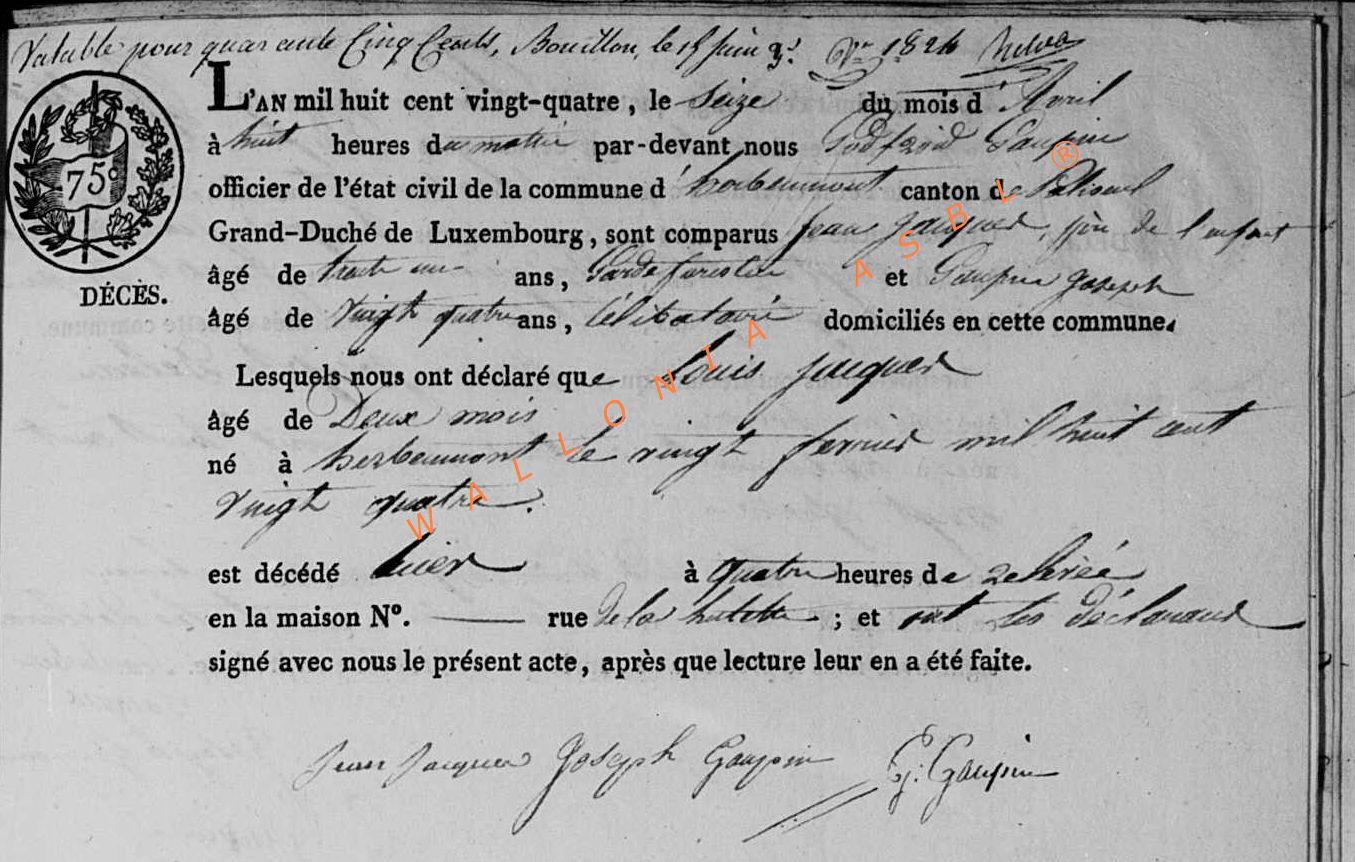 Valable pour quarante Cinq Cents, Bouillon, le 15 juin
1824
75c
DÉCÈS.
L'AN mil huit cent vingt-quatre, le Seize du mois d'Avril
à huit heures du matin par-devant nous Godfroid Gaupin
officier de l'état civil de la commune d'herbeumont canton de Paliseul
Grand-Duché de Luxembourg, sont comparus Jean Jacques, père de l'enfant
âgé de trente un ans, Garde forestier et Gaupin Joseph
âgé de Vingt quatre ans, Célibataire domiciliés en cette commune.
Lesquels nous ont déclaré que Louis Jacques
âgé de Deux mois
né à herbeumont le vingt fevrier mil huit cent
vingt quatre.
est décédé hier à quatre heures de relevée
en la maison N°. — rue de la ; et ont les déclarans
signé avec nous le présent acte, après que lecture leur en a été faite.
Jean Jacques Joseph Gaupin G. Gaupin
WALLONIA ASBL ®